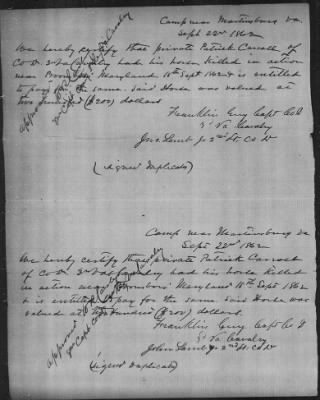 Camp near Martinsburg Va.
Sept 22nd 1862
We hereby certify that private Patrick Carroll of
Co D 3d Va Cavalry had his horse killed in action
near Maryland 15th Sept 1862 & is entitled
to pay for the same. Said Horse was valued at
two hundred ($200) dollars
Franklin Guy Capt Co D
3d Va Cavalry
Jno Lamb Jr 2nd Lt Co D
(signed Duplicate)
approved
Camp near Martinsburg Va
Sept 22nd 1862
We hereby certify that private Patrick Carroll
of Co D 3d Va Cavalry had his horse killed
in action near Maryland 15th Sept 1862
& is entitled to pay for the same said Horse was
valued at two hundred ($200) dollars.
Franklin Guy Capt Co D
3d Va Cavalry
John Lamb Jr 2nd Lt Co D
(signed Duplicate)
approved